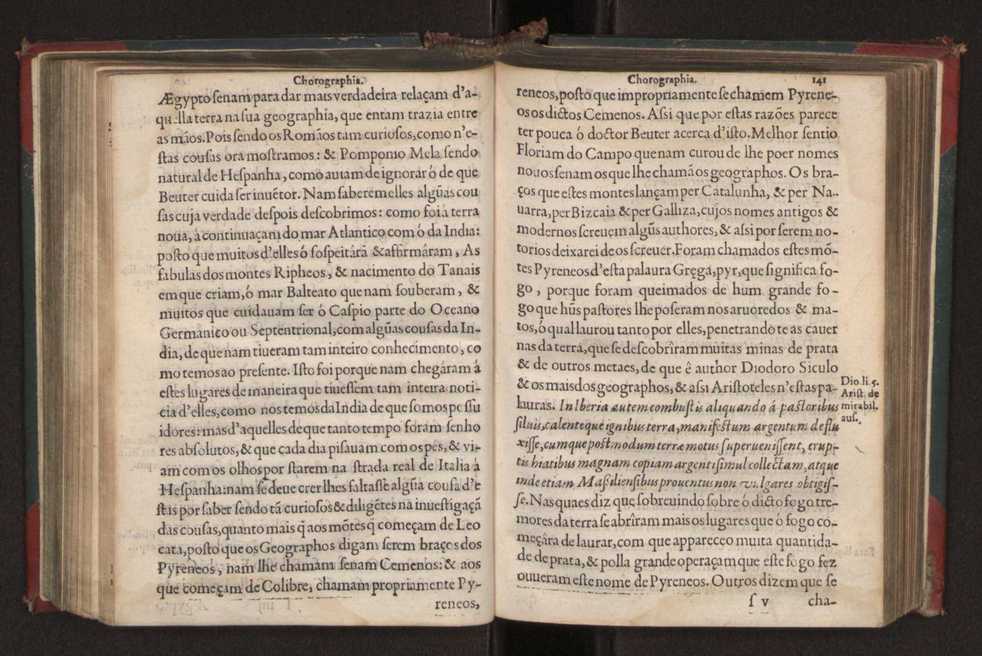 Chorographia.
Ægypto senam para dar mais verdadeira relaçam d'a-
quella terra na sua geographia, que entam trazia entre
as mãos. Pois sendo os Romãos tam curiosos, como n'e-
stas cousas ora mostramos: & Pomponio Mela sendo
natural de Hespanha, como auiam de ignorar ó de que
Beuter cuida ser inuētor. Nam saberem elles algũas cou
sas cuja verdade despois descobrimos: como foi á terra
noua, á continuaçam do mar Atlantico com ó da India:
posto que muitos d'elles ó sospeitárã & affirmáram, As
fabulas dos montes Ripheos, & nacimento do Tanais
em que criam, ó mar Balteato que nam souberam, &
muitos que cuidauam ser ó Caspio parte do Oceano
Germanico ou Septentrional, com algũas cousas da In-
dia, de que nam tiueram tam inteiro conhecimento, co
mo temos ao presente. Isto foi porque nam chegáram á
estes lugares de maneira que tiuessem tam inteira noti-
cia d'elles, como nos temos da India de que somos possu
idores: mas d'aquelles de que tanto tempo foram senho
res absolutos, & que cada dia pisauam com os pes, & vi-
am com os olhos por starem na strada real de Italia á
Hespanha: nam se deue crer lhes faltasse algũa cousa d'e
stas por saber sendo tã curiosos & diligētes na inuestigaçã
das cousas, quanto mais q̃ aos mōtes q̃ começam de Leo
cata, posto que os Geographos digam serem braços dos
Pyreneos, nam lhe chamam senam Cemenos: & aos
que começam de Colibre, chamam propriamente Py-
reneos,
Chorographia. 141
reneos, posto que impropriamente se chamem Pyrene-
os os dictos Cemenos. Assi que por estas razões parece
ter pouca ó doctor Beuter acerca d'isto. Melhor sentio
Floriam do Campo que nam curou de lhe poer nomes
nouos senam os que lhe chamã os geographos. Os bra-
ços que estes montes lançam per Catalunha, & per Na-
uarra, per Bizcaia & per Galliza, cujos nomes antigos &
modernos screuem algũs authores, & assi por serem no-
torios deixarei de os screuer. Foram chamados estes mō-
tes Pyreneos d'esta palaura Gręga, pyr, que significa fo-
go, porque foram queimados de hum grande fo-
go que hũs pastores lhe poseram nos aruoredos & ma-
tos, ó qual laurou tanto por elles, penetrando te as cauer
nas da terra, que se descobriram muitas minas de prata
& de outros metaes, de que ê author Diodoro Siculo
& os mais dos geographos, & assi Aristoteles n'estas pa-
Dio. li. 5.
Arist. de
mirabil.
aus.
lauras. In Iberia autem combustis aliquando á pastoribus
siluis, calenteque ignibus terra, manifestum argentum deflu
xisse, cumque postmodum terræ motus superuenissent, erup-
tis hiatibus magnam copiam argenti simul collectam, atque
inde etiam Massiliensibus prouentus non vulgares obtigis-
se. Nas quaes diz que sobreuindo sobre ó dicto fogo tre-
mores da terra se abriram mais os lugares que ó fogo co-
meçára de laurar, com que appareceo muita quantida-
de de prata, & polla grande operaçam que este fogo fez
ouueram este nome de Pyreneos. Outros dizem que se
s v cha-